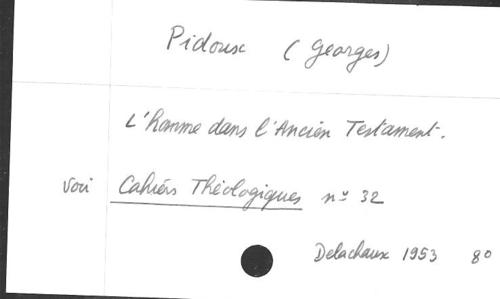 Pidoux (Georges)
L'homme dans l'Ancien Testament.
voir Cahiers Théologiques nº 32
Delachaux 1953 8º